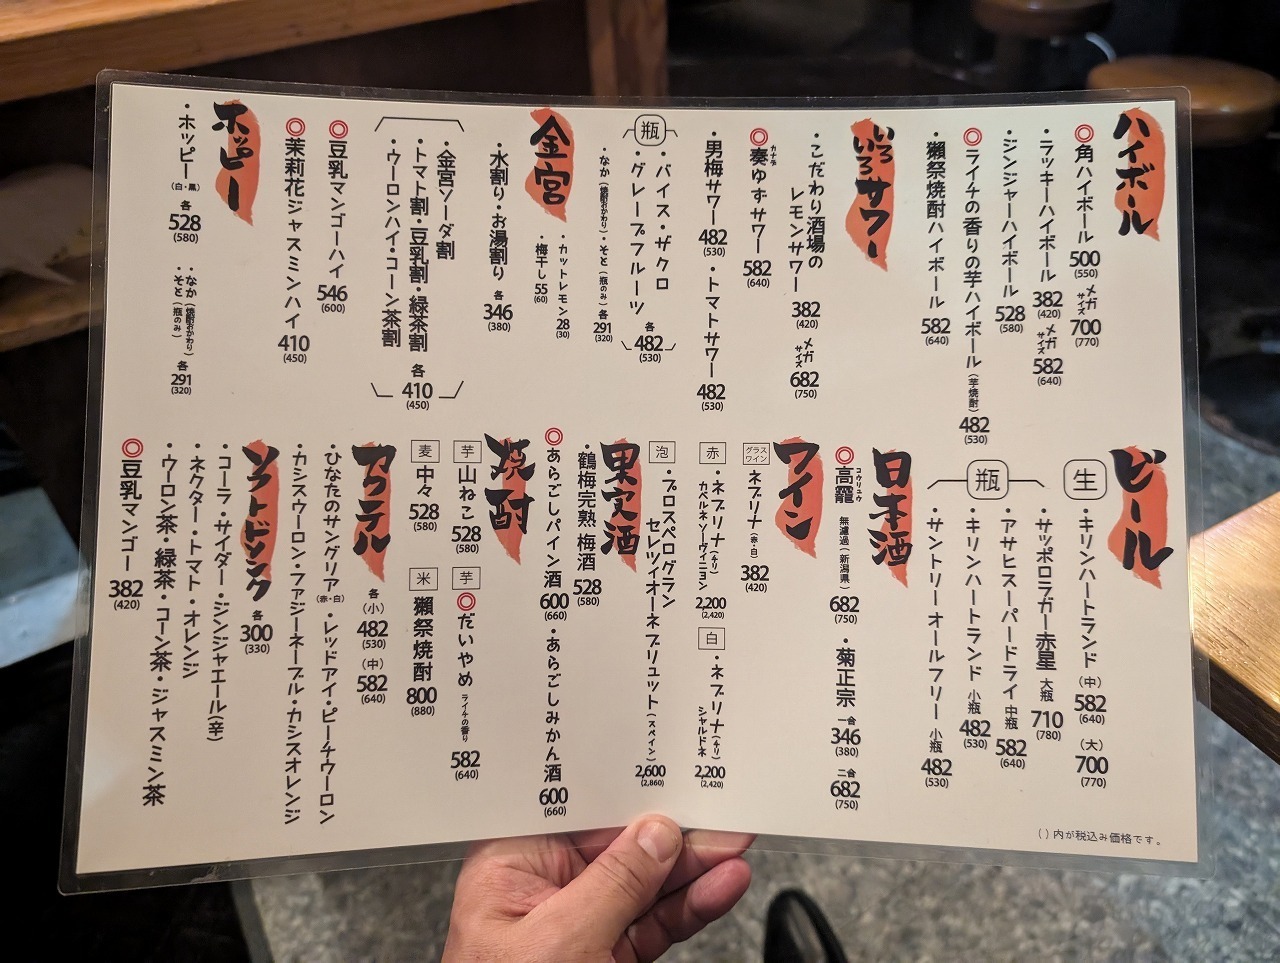 ハイボール
◎角ハイボール 500 (550) メガサイズ 700 (770)
・ラッキーハイボール 382 (420) メガサイズ 582 (640)
・ジンジャーハイボール 528 (580)
◎ライチの香りの芋ハイボール(芋焼酎) 482 (530)
・獺祭焼酎ハイボール 582 (640)
いろいろサワー
・こだわり酒場の
レモンサワー 382 (420) メガサイズ 682 (750)
◎奏ゆずサワー 582 (640)
カナデ
・男梅サワー 482 (530) ・トマトサワー 482 (530)
瓶
・バイス・ザクロ
・グレープフルーツ 各 482 (530)
・なか(焼酎おかわり)・そと(瓶のみ) 各 291 (320)
金宮
・カットレモン 28 (30)
・梅干し 55 (60)
・水割り・お湯割り 各 346 (380)
・金宮ソーダ割
・トマト割・豆乳割・緑茶割
・ウーロンハイ・コーン茶割
各 410 (450)
◎豆乳マンゴーハイ 546 (600)
◎茉莉花ジャスミンハイ 410 (450)
ホッピー
・ホッピー(白・黒) 各 528 (580)
・なか(焼酎おかわり)
・そと(瓶のみ)
各 291 (320)
ビール
生 ・キリンハートランド (中) 582 (640) (大) 700 (770)
瓶
・サッポロラガー赤星 大瓶 710 (780)
・アサヒスーパードライ 中瓶 582 (640)
・キリンハートランド 小瓶 482 (530)
・サントリーオールフリー 小瓶 482 (530)
日本酒
◎高龗 無濾過(新潟県) 682 (750)
コウリュウ
・菊正宗 一合 346 (380) 二合 682 (750)
ワイン
グラスワイン ネブリナ(赤・白) 382 (420)
赤 ・ネブリナ(チリ)
カベルネソーヴィニヨン 2,200 (2,420)
白 ・ネブリナ(チリ)
シャルドネ 2,200 (2,420)
泡 ・プロスペログラン
セレツィオーネブリュット(スペイン) 2,600 (2,860)
果実酒
・鶴梅完熟 梅酒 528 (580)
◎あらごしパイン酒 600 (660) ・あらごしみかん酒 600 (660)
焼酎
芋 山ねこ 528 (580)
芋 ◎だいやめ ライチの香り 582 (640)
麦 中々 528 (580)
米 獺祭焼酎 800 (880)
カクテル
各 (小) 482 (530) (中) 582 (640)
・ひなたのサングリア(赤・白)・レッドアイ・ピーチウーロン
・カシスウーロン・ファジーネーブル・カシスオレンジ
ソフトドリンク
各 300 (330)
・コーラ・サイダー・ジンジャエール(辛)
・ネクター・トマト・オレンジ
・ウーロン茶・緑茶・コーン茶・ジャスミン茶
◎豆乳マンゴー 382 (420)
( )内が税込み価格です。